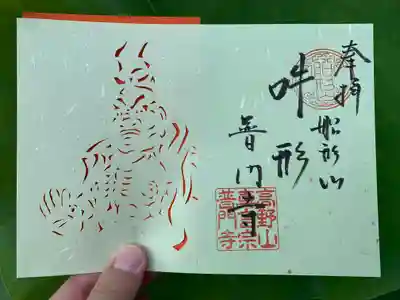 奉拝
船形山
吽形
普門寺
高野山
真言宗
普門寺